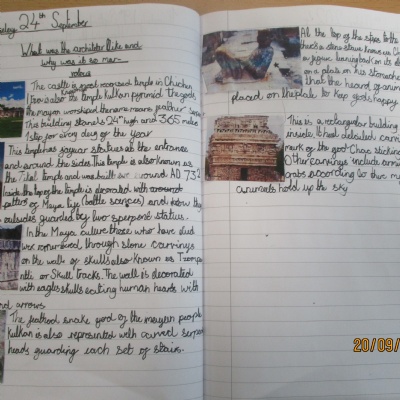 24th September
What was the architecture like and
why was it so mar-
velous
The castle is most recognised temple in Chichen
Itza is also the temple kulkon pyramid the gods
the mayan worshiped the name means feather
This building stone is 24m high and 365
1 step for every day of the year
This temple has jaguar statues at the entrance
and around the sides. This temple is also known as
the Tikal temple and was built around AD 732
Inside the top of the temple is decorated with
pattens of Maya life (battle sances) and
outsides guarded by two serpent status.
In the Maya culture those who have died
were remembered through stone carvings
on the wall of skulls also known as Tzompa
ntli or Skull tracks. The wall is decorated
with eagles skulls eating human hearts with
and arrows
The feathed snake god of the mayan people
kulkan is also represented with carved serpent
heads guarding each set of stairs.
At the top of the steps to the
there's a stone stave known as
or figure leaning back on its
on a plate on his stomache
that the heard of
placed on the plate to keep gods happy
This is a rectangular building
inside, it had detailed
mark of the god Chac sticking
Other carvings include
crabs according to the
animals hold up the sky
20/09/